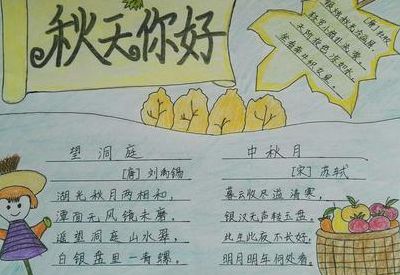 秋天你好
[唐] 杜牧
银烛秋光冷画屏，
轻罗小扇扑流萤。
天阶夜色凉如水，
坐看牵牛织女星。
望洞庭
[唐] 刘禹锡
湖光秋月两相和，
潭面无风镜未磨。
遥望洞庭山水翠，
白银盘里一青螺。
中秋月
[宋] 苏轼
暮云收尽溢清寒，
银汉无声转玉盘。
此生此夜不长好，
明月明年何处看。